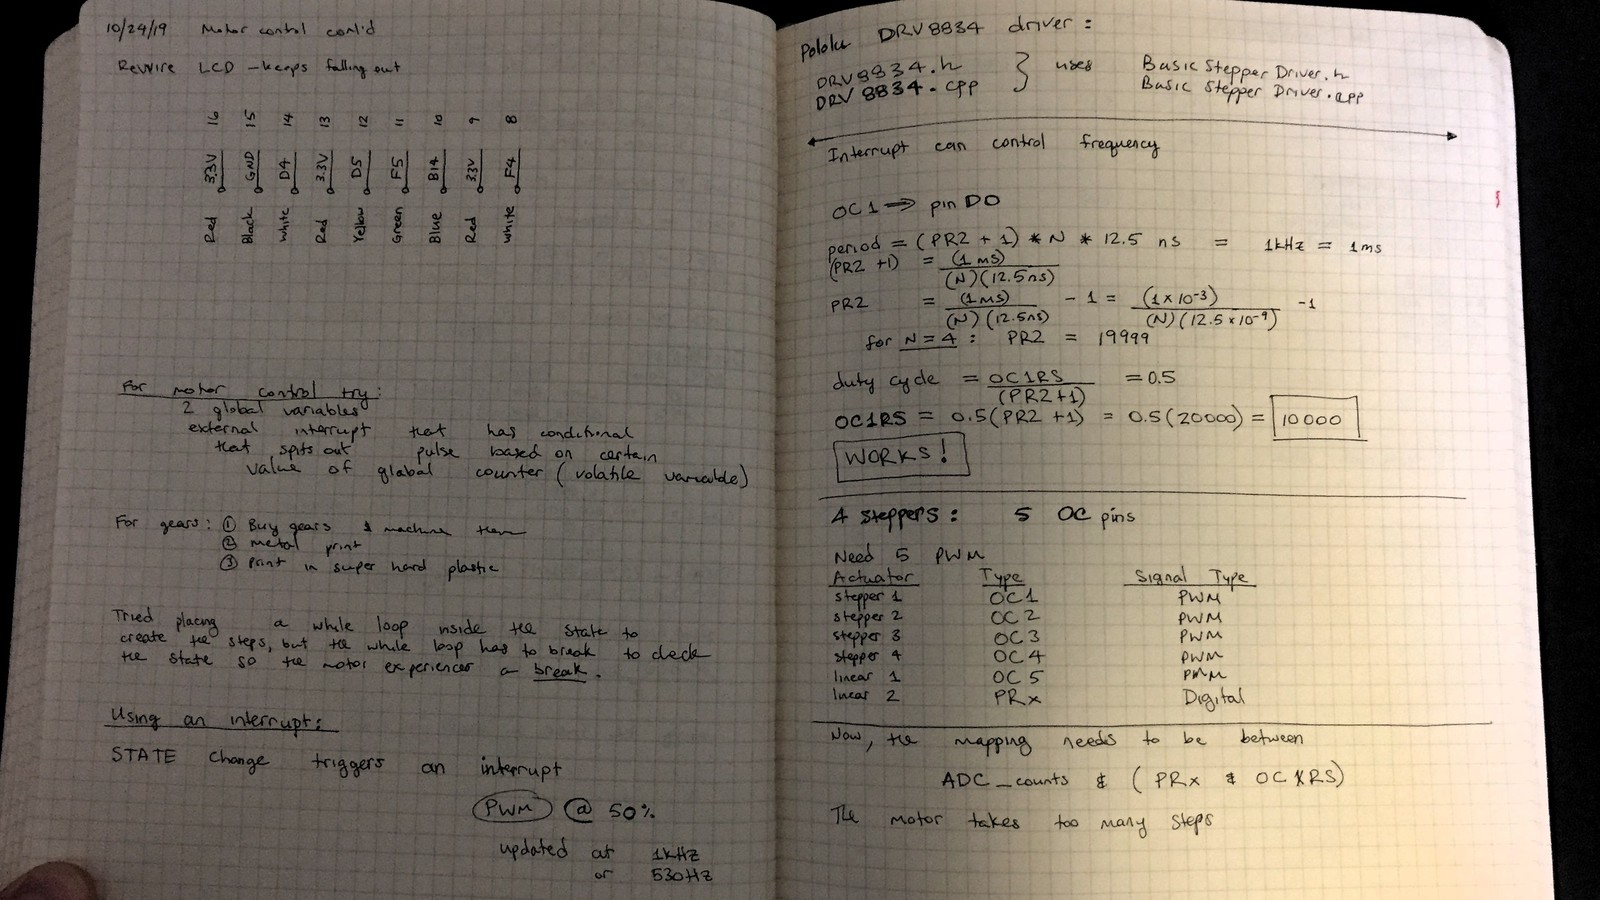 10/24/19 Motor control cont'd
Rewire LCD - keeps falling out
16 15 14 13 12 11 10 9 8
3.3V GND D4 3.3V D5 F5 B14 3.3V F4
Red Black White Red Yellow Green Blue Red White
For motor control try:
2 global variables
external interrupt that has conditional
that spits out pulse based on certain
value of global counter (volatile variable)
For gears: ① Buy gears & machine them
② metal print
③ Print in super hard plastic
Tried placing a while loop inside the state to
create the steps, but the while loop has to break to check
the state so the motor experiences a break.
Using an interrupt:
STATE change triggers an interrupt
PWM @ 50%
updated at 1kHz
or 530Hz
Pololu DRV8834 driver:
DRV8834.h } uses Basic Stepper Driver.h
DRV8834.cpp Basic Stepper Driver.cpp
Interrupt can control frequency
OC1 ⇒ pin D0
period = (PR2 + 1) * N * 12.5 ns = 1kHz = 1ms
(PR2 +1) = (1 ms) / (N)(12.5ns)
PR2 = (1ms) / (N)(12.5ns) - 1 = (1×10⁻³) / (N)(12.5×10⁻⁹) -1
for N=4: PR2 = 19999
duty cycle = OC1RS / (PR2+1) = 0.5
OC1RS = 0.5(PR2 +1) = 0.5(20000) = 10000
WORKS!
4 steppers: 5 OC pins
Need 5 PWM
Actuator Type Signal Type
stepper 1 OC1 PWM
stepper 2 OC2 PWM
stepper 3 OC3 PWM
stepper 4 OC4 PWM
linear 1 OC5 PWM
linear 2 PRx Digital
Now, the mapping needs to be between
ADC_counts & (PRx & OCxRS)
The motor takes too many steps